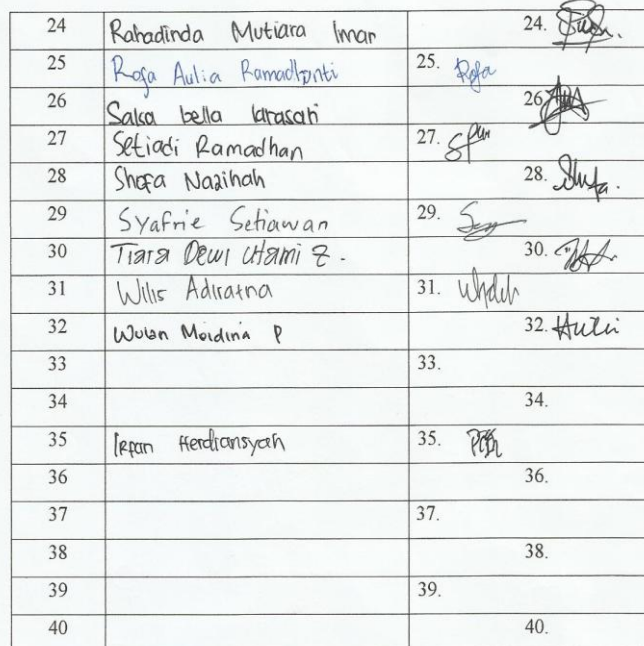 24 Rahadinda Mutiara Imar 24.
25 Rofa Aulia Ramadhanti 25. Rofa
26 Salsa bella larasati 26
27 Setiadi Ramadhan 27.
28 Shofa Nazihah 28.
29 Syafrie Setiawan 29.
30 Tiara Dewi Utami Z. 30.
31 Wilis Adiratna 31.
32 Wulan Meidina P 32.
33 33.
34 34.
35 Irfan Herdiansyah 35.
36 36.
37 37.
38 38.
39 39.
40 40.